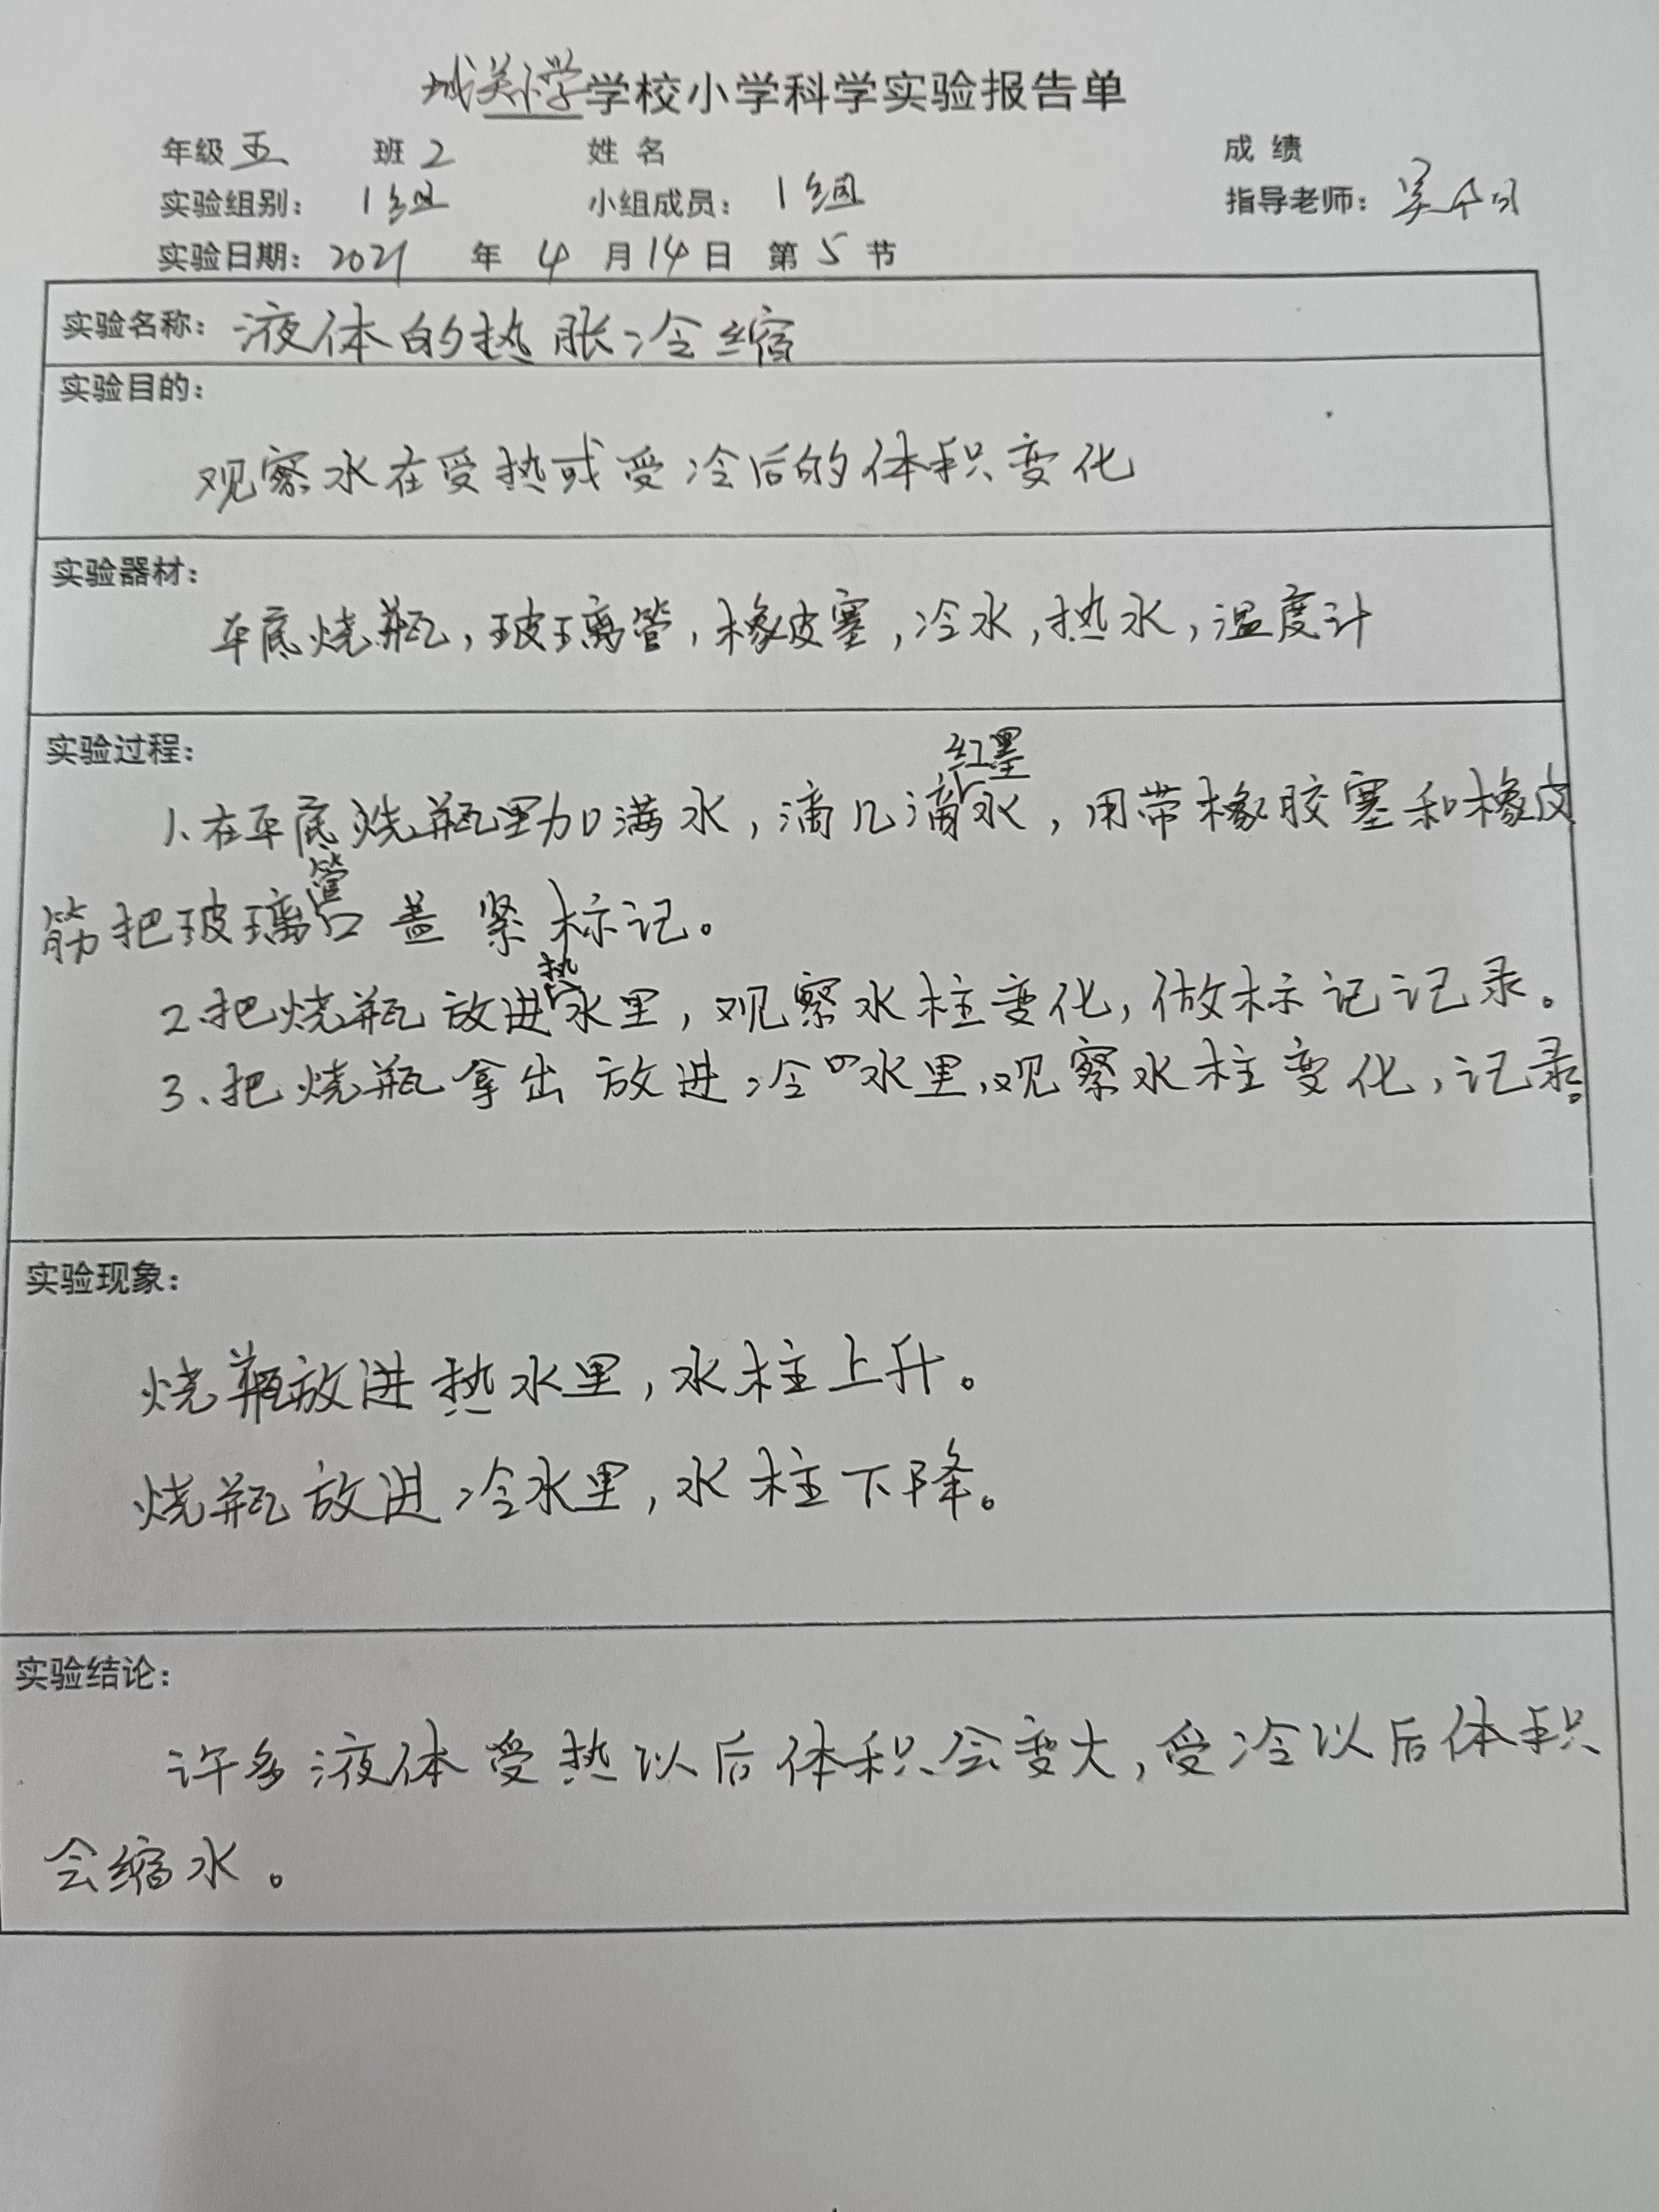 城关小学学校小学科学实验报告单
年级 五 班 2 姓名 成绩
实验组别: 1组 小组成员: 1组 指导老师: 吴
实验日期: 2021 年 4 月 14 日 第 5 节
实验名称: 液体的热胀冷缩
实验目的:
观察水在受热或受冷后的体积变化
实验器材:
平底烧瓶,玻璃管,橡皮塞,冷水,热水,温度计
实验过程:
1、在平底烧瓶里加满水,滴几滴红墨水,用带橡胶塞和橡皮
筋把玻璃管口盖紧标记。
2、把烧瓶放进热水里,观察水柱变化,做标记记录。
3、把烧瓶拿出放进冷水里,观察水柱变化,记录。
实验现象:
烧瓶放进热水里,水柱上升。
烧瓶放进冷水里,水柱下降。
实验结论:
许多液体受热以后体积会变大,受冷以后体积
会缩水。